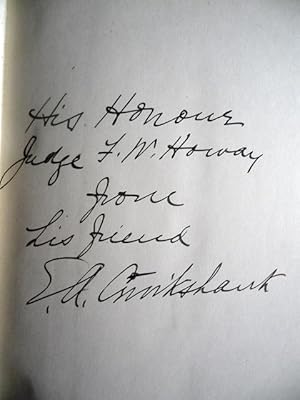 His Honour
Judge F. W. Howay
from
his friend
E. A. Cruikshank